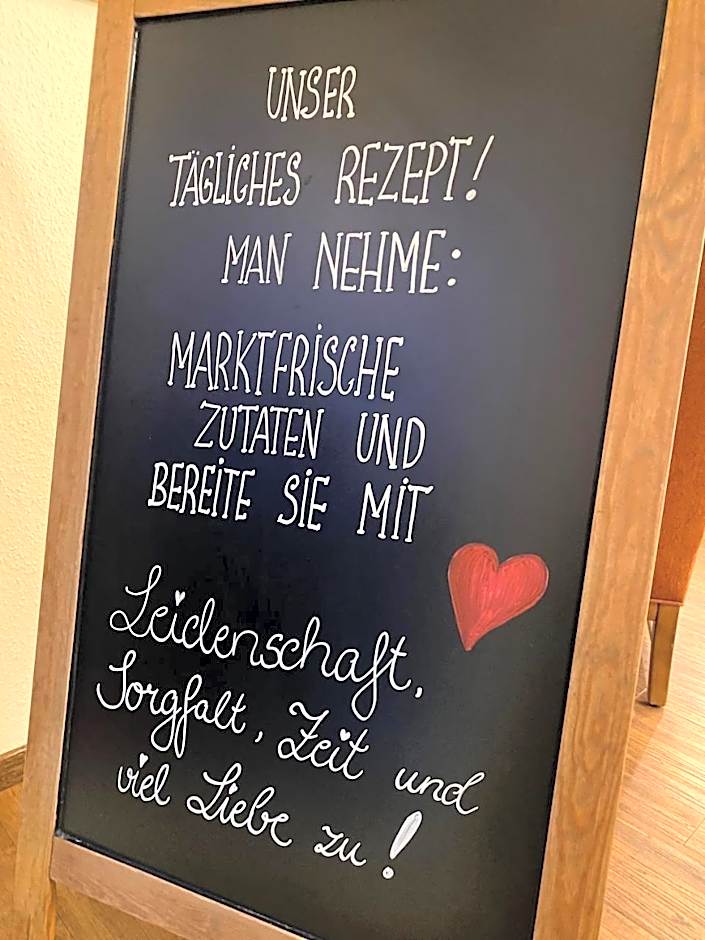 UNSER
TÄGLICHES REZEPT!
MAN NEHME:
MARKTFRISCHE
ZUTATEN UND
BEREITE SIE MIT
Leidenschaft,
Sorgfalt, Zeit und
viel Liebe zu!